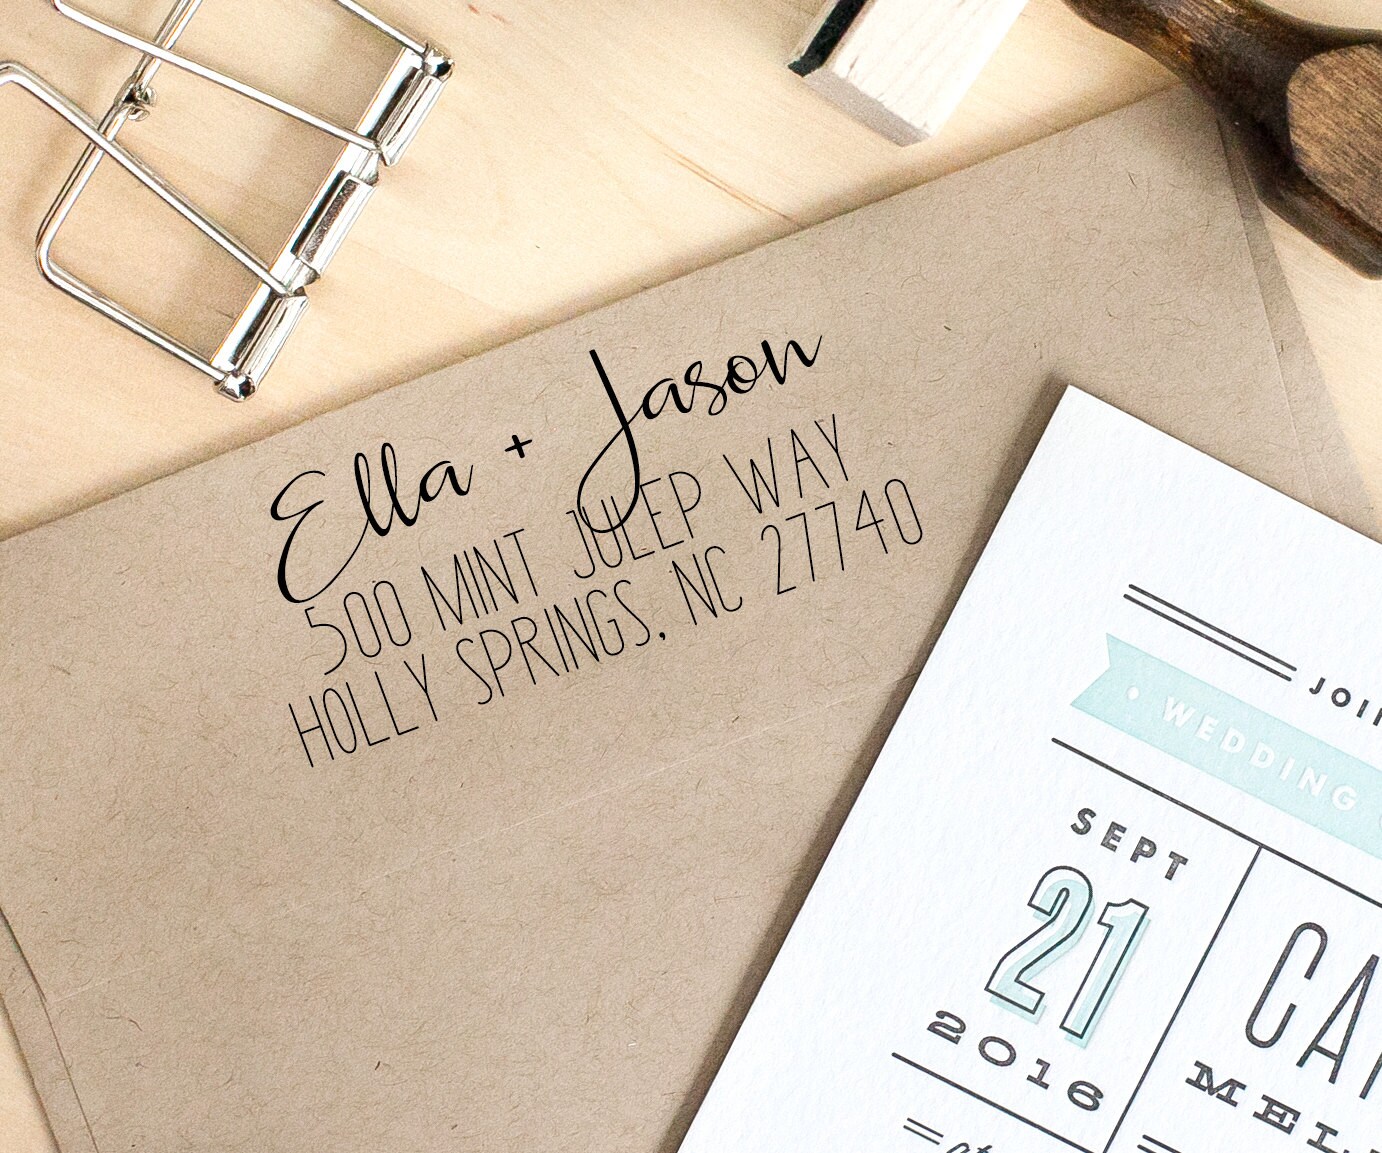 Ella + Jason
500 MINT JULEP WAY
HOLLY SPRINGS, NC 27740
WEDDING
SEPT
21
2016